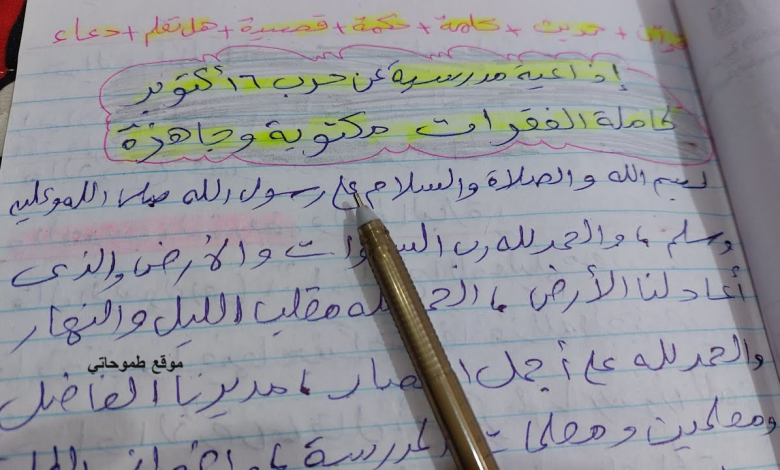 قرآن + حديث + كلمة + حكمة + قصيدة + هل تعلم + دعاء
إذاعية مدرسية عن حرب ٦ أكتوبر
كاملة الفقرات مكتوبة وجاهزة
بسم الله والصلاة والسلام على رسول الله صلى الله وعليه
وسلم ، والحمد لله رب السموات والأرض والذى
أعاد لنا الأرض ، الحمد لله مقلب الليل والنهار
والحمد لله على أجمل ، مديرنا الفاضل
موقع طموحاتي
ومعلمين ومعلمات المدرسة